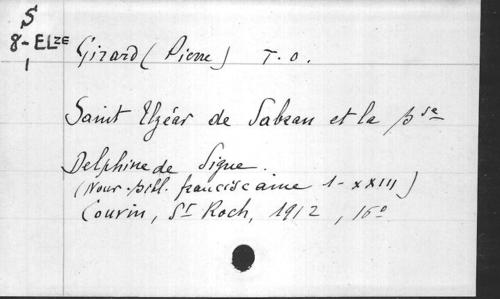 S
8-ELZE
1
Girard (Pierre) T.O.
Saint Elzéar de Sabran et la Bse
Delphine de Signe.
(Nouv. bibl. franciscaine 1-XXIII)
Couvin, St Roch, 1912, 16°